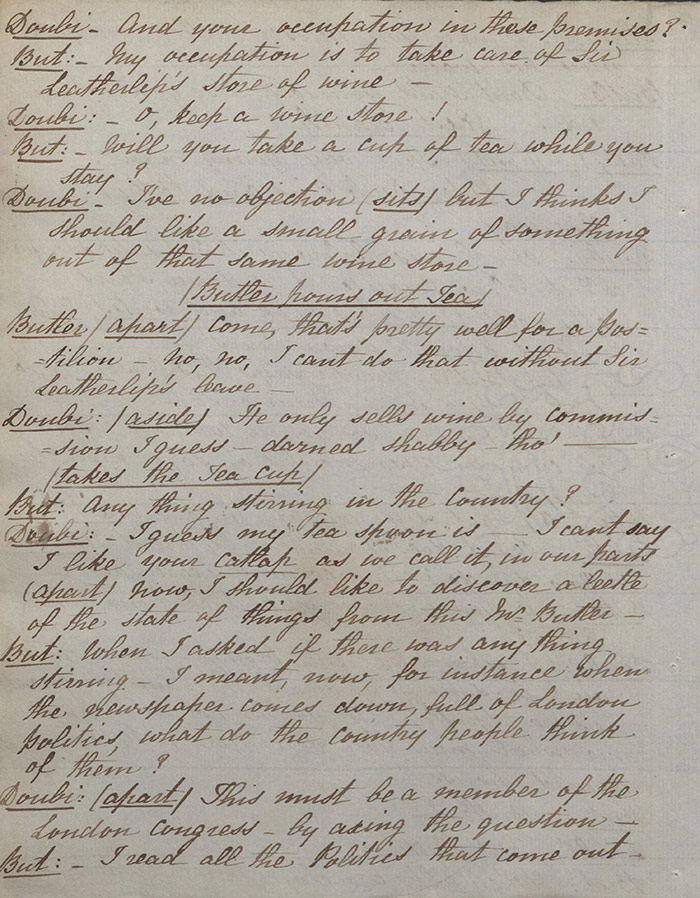 Doubi - And your occupation in these premises?
But: - My occupation is to take care of Sir
Leatherlip's store of wine -
Doubi: - O, keep a wine store!
But: - Will you take a cup of tea while you
stay?
Doubi - I've no objection (sits) but I thinks I
should like a small grain of something
out of that same wine store -
(Butler pours out Tea)
Butler (apart) come, that's pretty well for a pos=
=tilion - no, no, I cant do that without Sir
Leatherlip's leave -
Doubi: (aside) He only sells wine by commis=
=sion I guess - darned shabby - tho' -
(takes the Tea cup)
But: Any thing stirring in the Country?
Doubi: - I guess my tea spoon is - I cant say
I like your catlap as we call it, in our parts
(apart) now, I should like to discover a leetle
of the state of things from this Mr Butler -
But: When I asked if there was any thing
stirring - I meant, now, for instance when
the newspaper comes down, full of London
Politics, what do the country people think
of them?
Doubi: (apart) This must be a member of the
London Congress - by axing the question -
But: - I read all the Politics that come out -